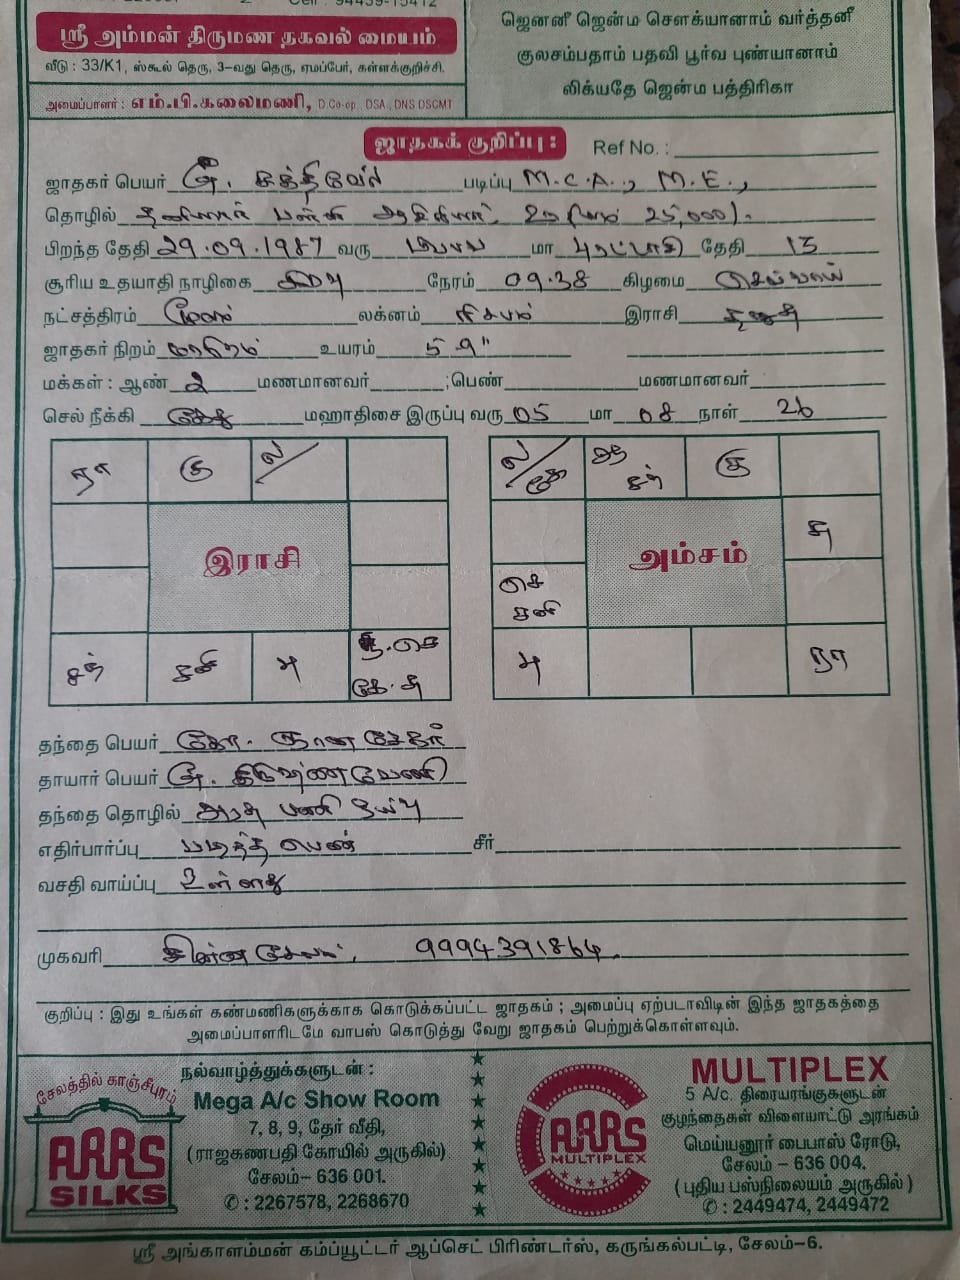 ஸ்ரீ அம்மன் திருமண தகவல் மையம்
வீடு : 33/K1, ஸ்கூல் தெரு, 3-வது தெரு, ஏமப்பேர், கள்ளக்குறிச்சி.
அமைப்பாளர் : எம்.பி.கலைமணி, D.Co-op., DSA., DNS DSCMT
ஜெனனீ ஜென்ம சௌக்யானாம் வர்த்தனீ
குலசம்பதாம் பதவி பூர்வ புண்யானாம்
லிக்யதே ஜென்ம பத்திரிகா
ஜாதகக் குறிப்பு : Ref No. :
ஜாதகர் பெயர் படிப்பு M.C.A., M.E.,
தொழில் தனியார் பள்ளி ஆசிரியர், 25,000/.
பிறந்த தேதி 29.09.1987 வரு மா புரட்டாசி தேதி 13
சூரிய உதயாதி நாழிகை நேரம் 09.38 கிழமை செவ்வாய்
நட்சத்திரம் மூலம் லக்னம் ரிசபம் இராசி தனுசு
ஜாதகர் நிறம் மாநிறம் உயரம் 5 9"
மக்கள் : ஆண் 2 மணமானவர் ; பெண் மணமானவர்
செல் நீக்கி கேது மஹாதிசை இருப்பு வரு 05 மா 08 நாள் 26
ரா குரு ல/
இராசி
சந் சனி பு சூ.செ
கே.சு
ல/ சூ சந் குரு
சு
அம்சம்
செ
சனி
பு ரா
தந்தை பெயர் கோ. ஞானசேகர்
தாயார் பெயர் கிருஷ்ணவேணி
தந்தை தொழில் அரசு பணி ஓய்வு
எதிர்பார்ப்பு படித்த பெண் சீர்
வசதி வாய்ப்பு உள்ளது
முகவரி சின்னசேலம், 9994391864.
குறிப்பு : இது உங்கள் கண்மணிகளுக்காக கொடுக்கப்பட்ட ஜாதகம் ; அமைப்பு ஏற்படாவிடின் இந்த ஜாதகத்தை
அமைப்பாளரிடமே வாபஸ் கொடுத்து வேறு ஜாதகம் பெற்றுக்கொள்ளவும்.
சேலத்தில் காஞ்சீபுரம்
ARRS
SILKS
நல்வாழ்த்துக்களுடன் :
Mega A/c Show Room
7, 8, 9, தேர் வீதி,
(ராஜகணபதி கோயில் அருகில்)
சேலம்– 636 001.
✆ : 2267578, 2268670
ARRS
MULTIPLEX
MULTIPLEX
5 A/c. திரையரங்குகளுடன்
குழந்தைகள் விளையாட்டு அரங்கம்
மெய்யனூர் பைபாஸ் ரோடு,
சேலம் – 636 004.
(புதிய பஸ்நிலையம் அருகில்)
✆ : 2449474, 2449472
ஸ்ரீ அங்காளம்மன் கம்ப்யூட்டர் ஆப்செட் பிரிண்டர்ஸ், கருங்கல்பட்டி, சேலம்–6.